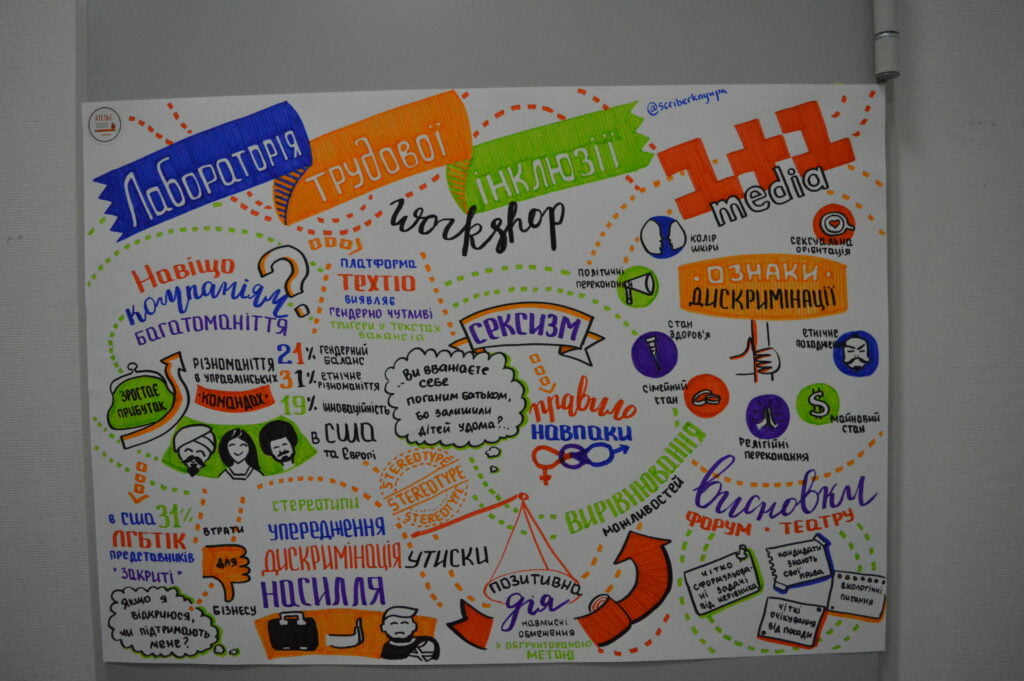 АТЕЛЬЄ
@scriberknyupa
Лабораторія
трудової
інклюзії
workshop
1+1
media
Навіщо
компаніям
багатоманіття
?
платформа
ТЕХТІО
виявляє
гендерно чутливі
тригери у текстах
вакансій
зростає
прибуток
різноманіття
в управлінських
командах
21% гендерний
баланс
31% етнічне
різноманіття
19% інноваційність
в США
та Європі
СЕКСИЗМ
Ви вважаєте
себе
поганим батьком,
бо залишили
дітей удома?..
правило
навпаки
колір
шкіри
сексуальна
орієнтація
політичні
переконання
ОЗНАКИ
ДИСКРИМІНАЦІЇ
стан
здоров'я
етнічне
походження
сімейний
стан
$
майновий
стан
релігійні
переконання
в США 31%
ЛГБТІК
представників
"закриті"
Якщо я
відкриюся,
чи підтримають
мене?
втрати
для
бізнесу
стереотипи
упередження
дискримінація
утиски
насилля
STEREOTYPE
STEREOTYPE
STEREOTYPE
вирівнювання
можливостей
позитивна
дія
навмисні
обмеження
з обґрунтованою
метою
висновки
форум - театру
чітко
сформульова-
ні задачі
від керівника
кандидати
знають
свої права
чіткі
очікування
від посади
екологічні
питання